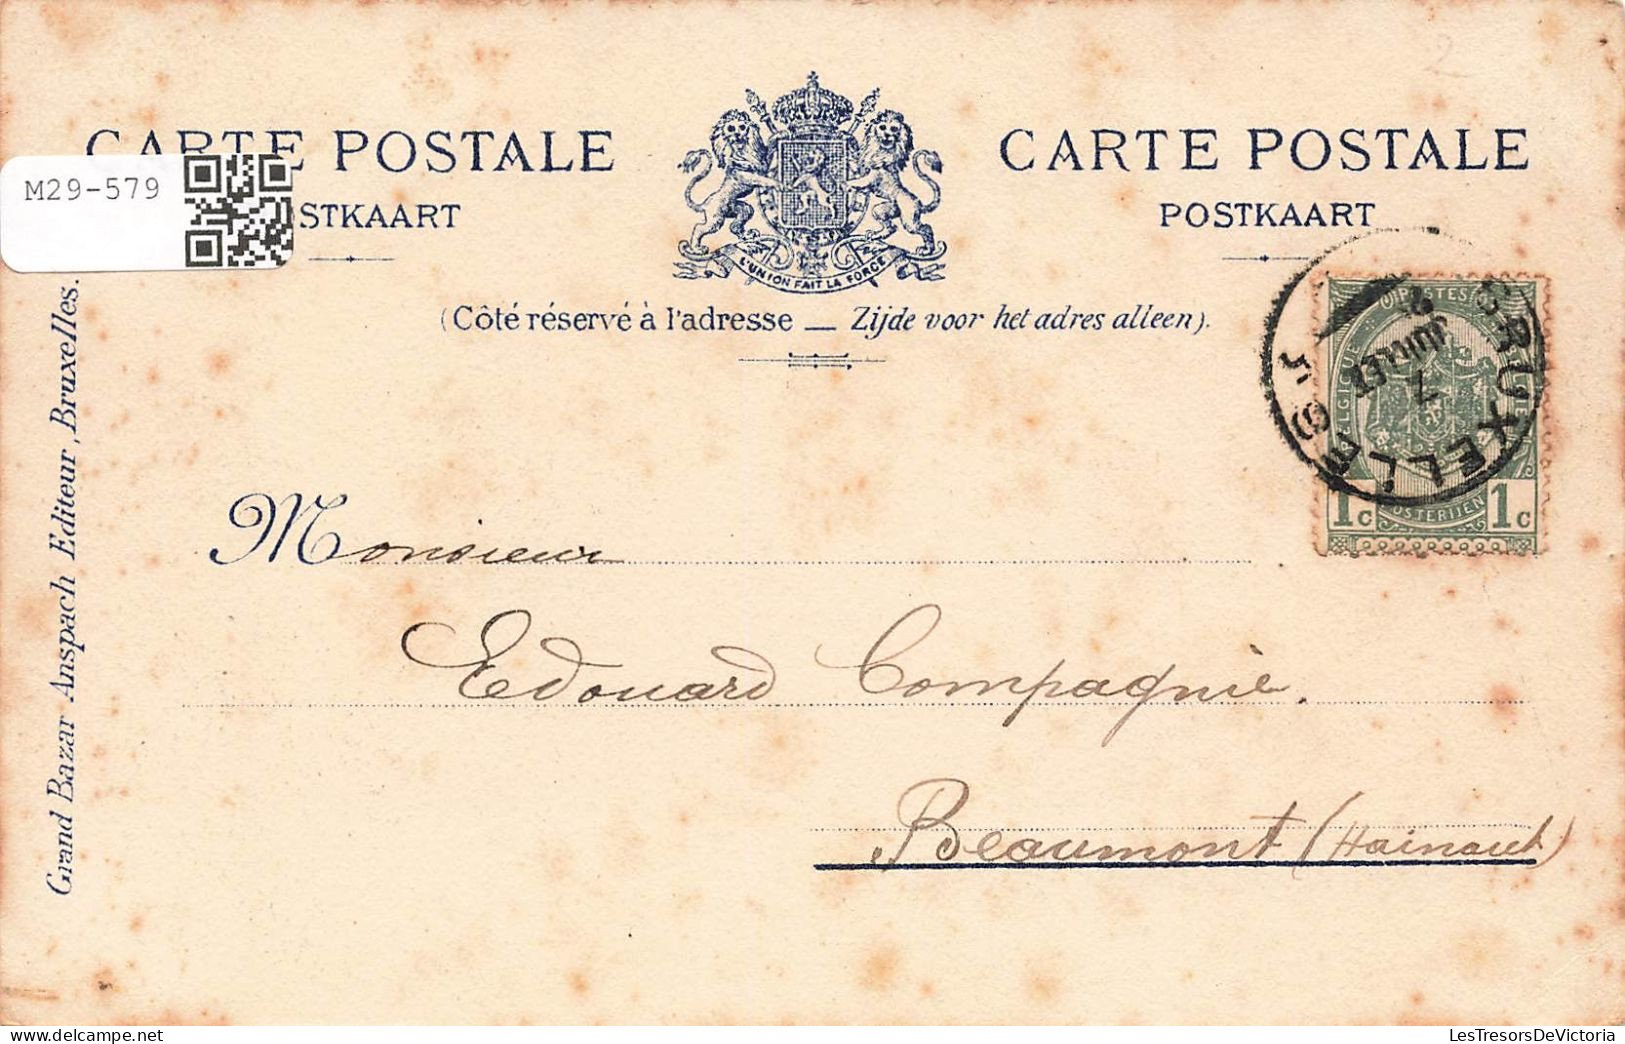 CARTE POSTALE
CARTE POSTALE
M29-579
STKAART
POSTKAART
L'UNION FAIT LA FORCE
(Côté réservé à l'adresse — Zijde voor het adres alleen).
POSTES
BRUXELLES
JUILLET
7
1c 1c
Monsieur
Edouard Compagnie.
Beaumont (Hainaut)
Grand Bazar Anspach Editeur, Bruxelles.
LesTresorsDeVictoria